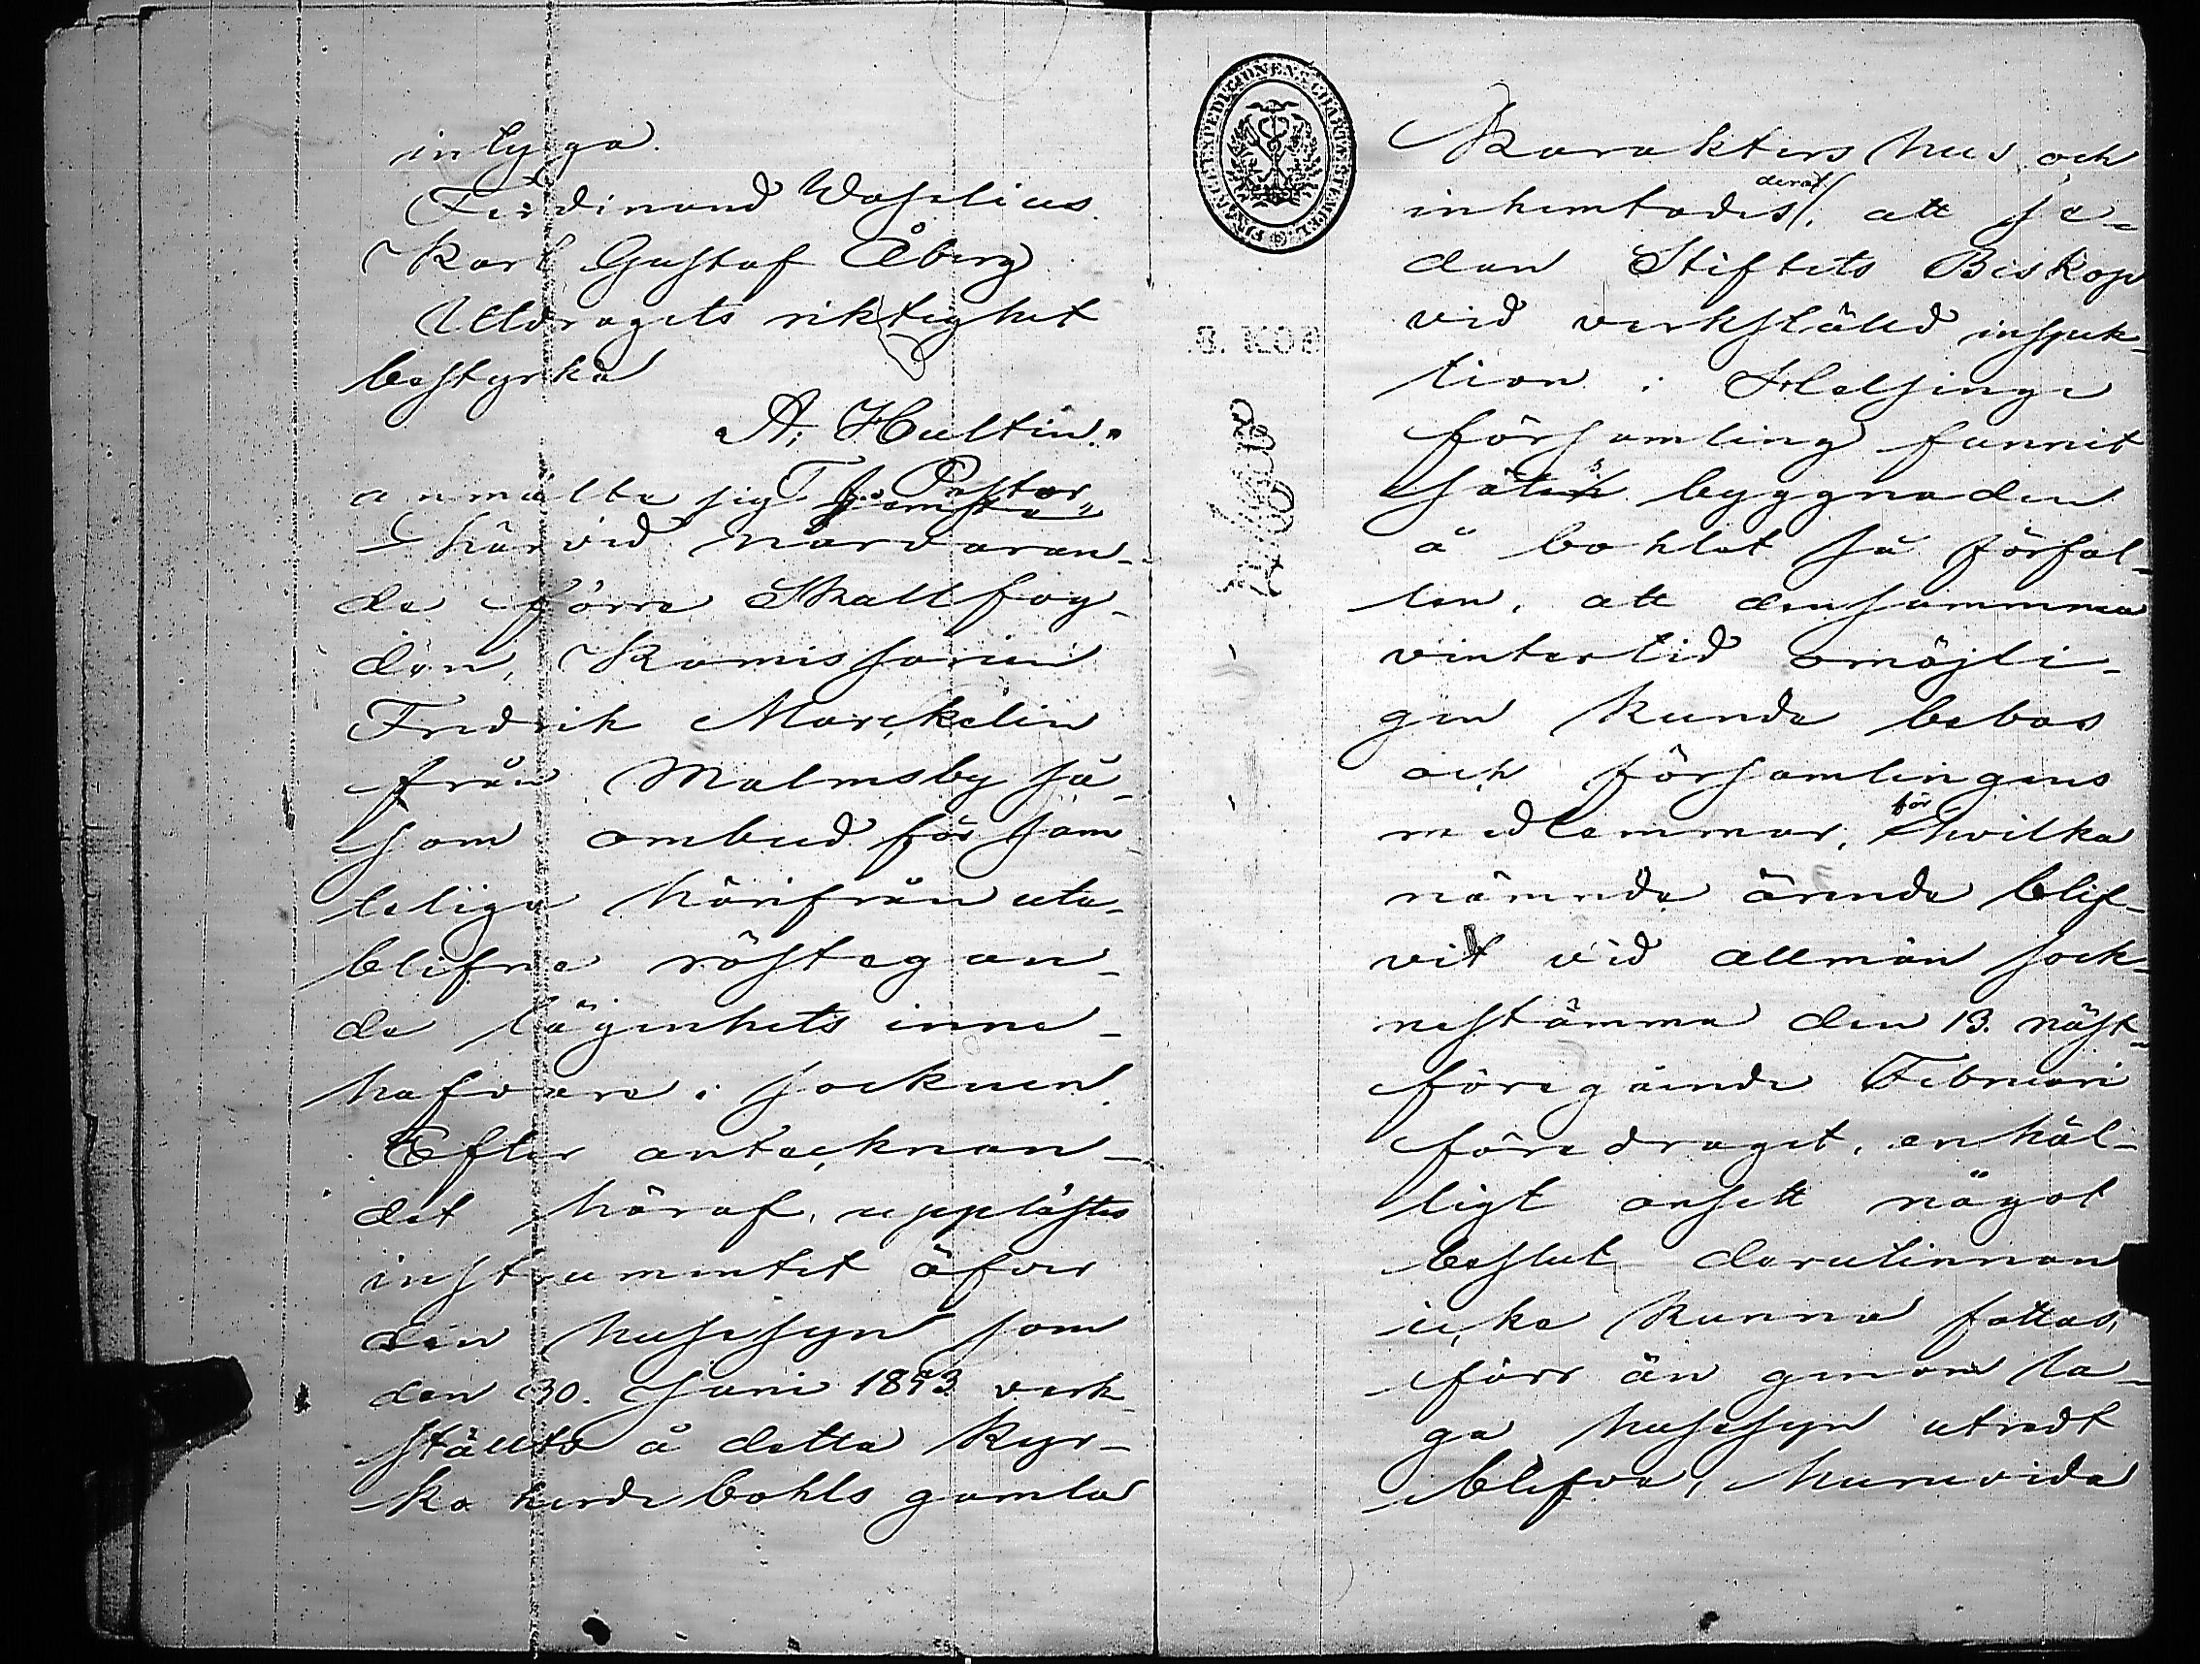 intyga.
Ferdinand Waselius.
Karl Gustaf Åberg
Utdragets riktighet
bestyrker
A. Hultin."
T. f. Pastor
anmälte sig
härvid närvaran-
de förre Skallfog-
den, Komissarien
Fredrik Marckelin
från Malmsby så-
som ombud för sam-
teliga härifrån ute-
blifne röstegan-
de lägenhets inne-
hafvare i socknen.
Efter antecknan-
det häraf, upplästes
instrumentet öfver
den husesyn som
den 30. Juni 1893 verk-
stälts å detta kyr-
ko herde bohls gamla
FINANCE EXPEDITIONENS CHARTÆ STEMPEL.
Karakters hus och
inhemtades deraf, att se-
dan Stiftets Biskop
vid verkstäld inspek-
tion i Helsinge
församling funnit
sätes byggnaden
å bohlet så förfal-
len, att densamma
vintertid omöjli-
gen kunde bebos
och församlingens
medlemmar, för hvilka
nämnda ärende blif-
vit vid allmän sock-
nestämma den 13. näst-
föregående Februari
föredraget, enhäl-
ligt ansett något
beslut derutinnan
icke kunna fattas,
förr än genom la-
ga husesyn utredt
blefve, huruvida